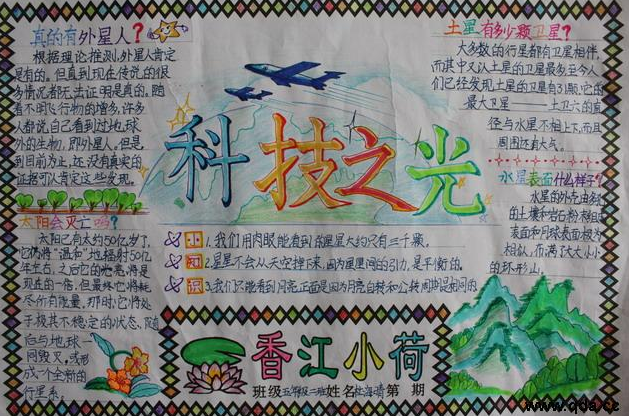 真的有外星人？
根据理论推测,外星人肯定
是有的。但直到现在传说的很
多情况都无法证明是真的。随
着不明飞行物的增多,许多
人都说,自己看到过地球
外的生物,即外星人。但是,
到目前为止,还没有真实的
证据可以肯定这些发现。
太阳会灭亡吗？
太阳已有大约50亿岁了,
它仍将"温和"地辐射50亿
年左右,之后它的光亮将是
现在的一倍,但最终它将耗
尽所有能量,那时,它将处
于极其不稳定的状态,随
后与地球一
同毁灭,或形
成一个全新的
行星系。
科技之光
小 1.我们用肉眼能看到的星星大约只有三千颗。
知 2.星星不会从天空掉下来,因为星星间的引力,是平衡的。
识 3.我们只能看到月亮正面是因为月亮自转和公转周期是相同的
香江小荷
班级五年级二班姓名 第 期
土星有多少颗卫星？
大多数的行星都有卫星相伴,
而其中又以土星的卫星最多,至今人
们已经发现土星的卫星有31颗,它的
最大卫星——土卫六的直
径与水星不相上下,而且
周围还有大气。
水星表面什么样子？
水星的外壳由多孔
的土壤和岩石粉末组成,
表面和月球表面极为
相似,布满了大大小小
的环形山。
www.qda.cc